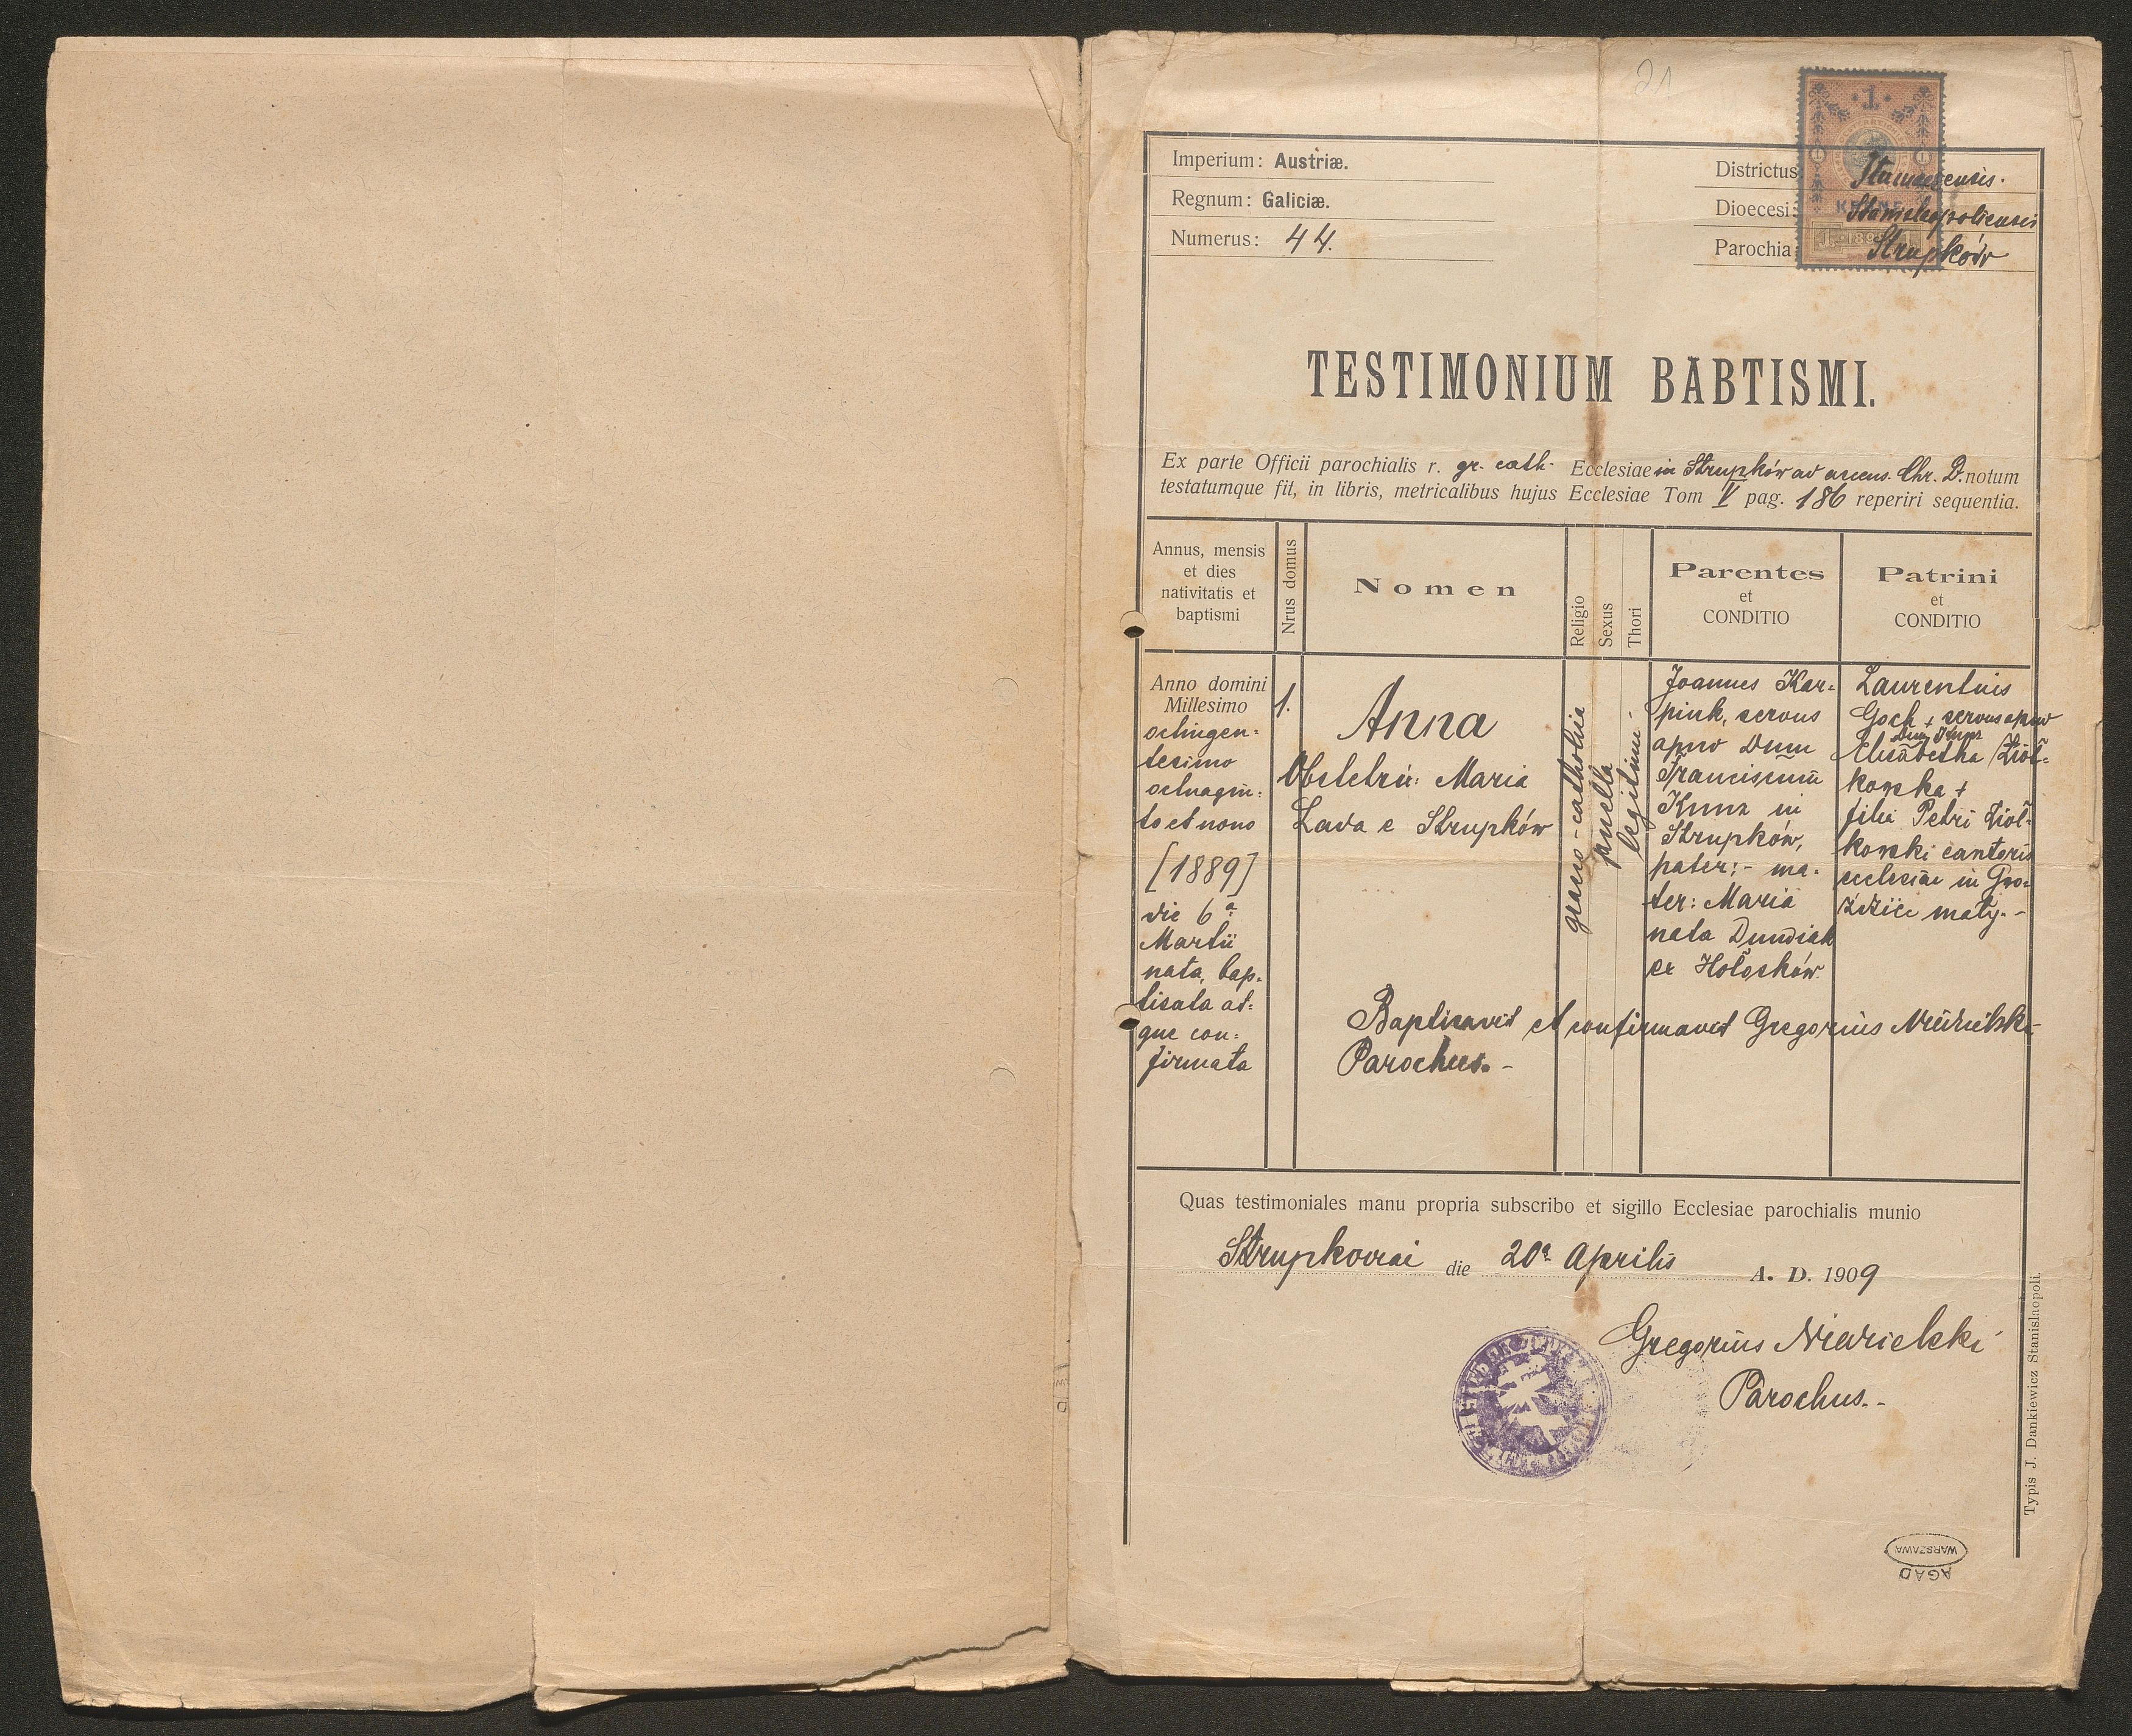 21
Imperium: Austriæ.
Regnum: Galiciæ.
Numerus: 44.
1
Districtus
Dioecesis: Stanislaopoliensis
Parochia Strupków
TESTIMONIUM BABTISMI.
Ex parte Officii parochialis r. gr. cath. Ecclesiae in Strupków ad ascens. Chr. D. notum
testatumque fit, in libris, metricalibus hujus Ecclesiae Tom V pag. 186 reperiri sequentia.
Annus, mensis
et dies
nativitatis et
baptismi
Nrus domus
Nomen
Religio
Sexus
Thori
Parentes
et
CONDITIO
Patrini
et
CONDITIO
Anno domini
Millesimo
octingen-
tesimo
octuagin-
to et nono
[1889]
die 6ª
Martii
nata, bap-
tisata at-
que con-
firmata
1.
Anna
Obstetrix: Maria
Lada e Strupków
graeco-catholica
puella
legitimi.-
Joannes Kar-
piuk, servus
apud Dum
Franciscum
Kunz in
Strupków,
pater; - ma-
ter: Maria
nata Dundiak
ex Hołosków
Laurentius
Goch + servus apud
Dum Kunz
Elisabetha Ziół-
kowska +
filia Petri Ziół-
kowski cantoris
ecclesiae in
małg.-
Baptisavit et confirmavit Gregorius Niedzielski
Parochus.-
Quas testimoniales manu propria subscribo et sigillo Ecclesiae parochialis munio
Strupkoviae die 20ª Aprilis A. D. 1909
Gregorius Niedzielski
Parochus.-
Typis J. Dankiewicz Stanislaopoli.
WARSZAWA
AGAD